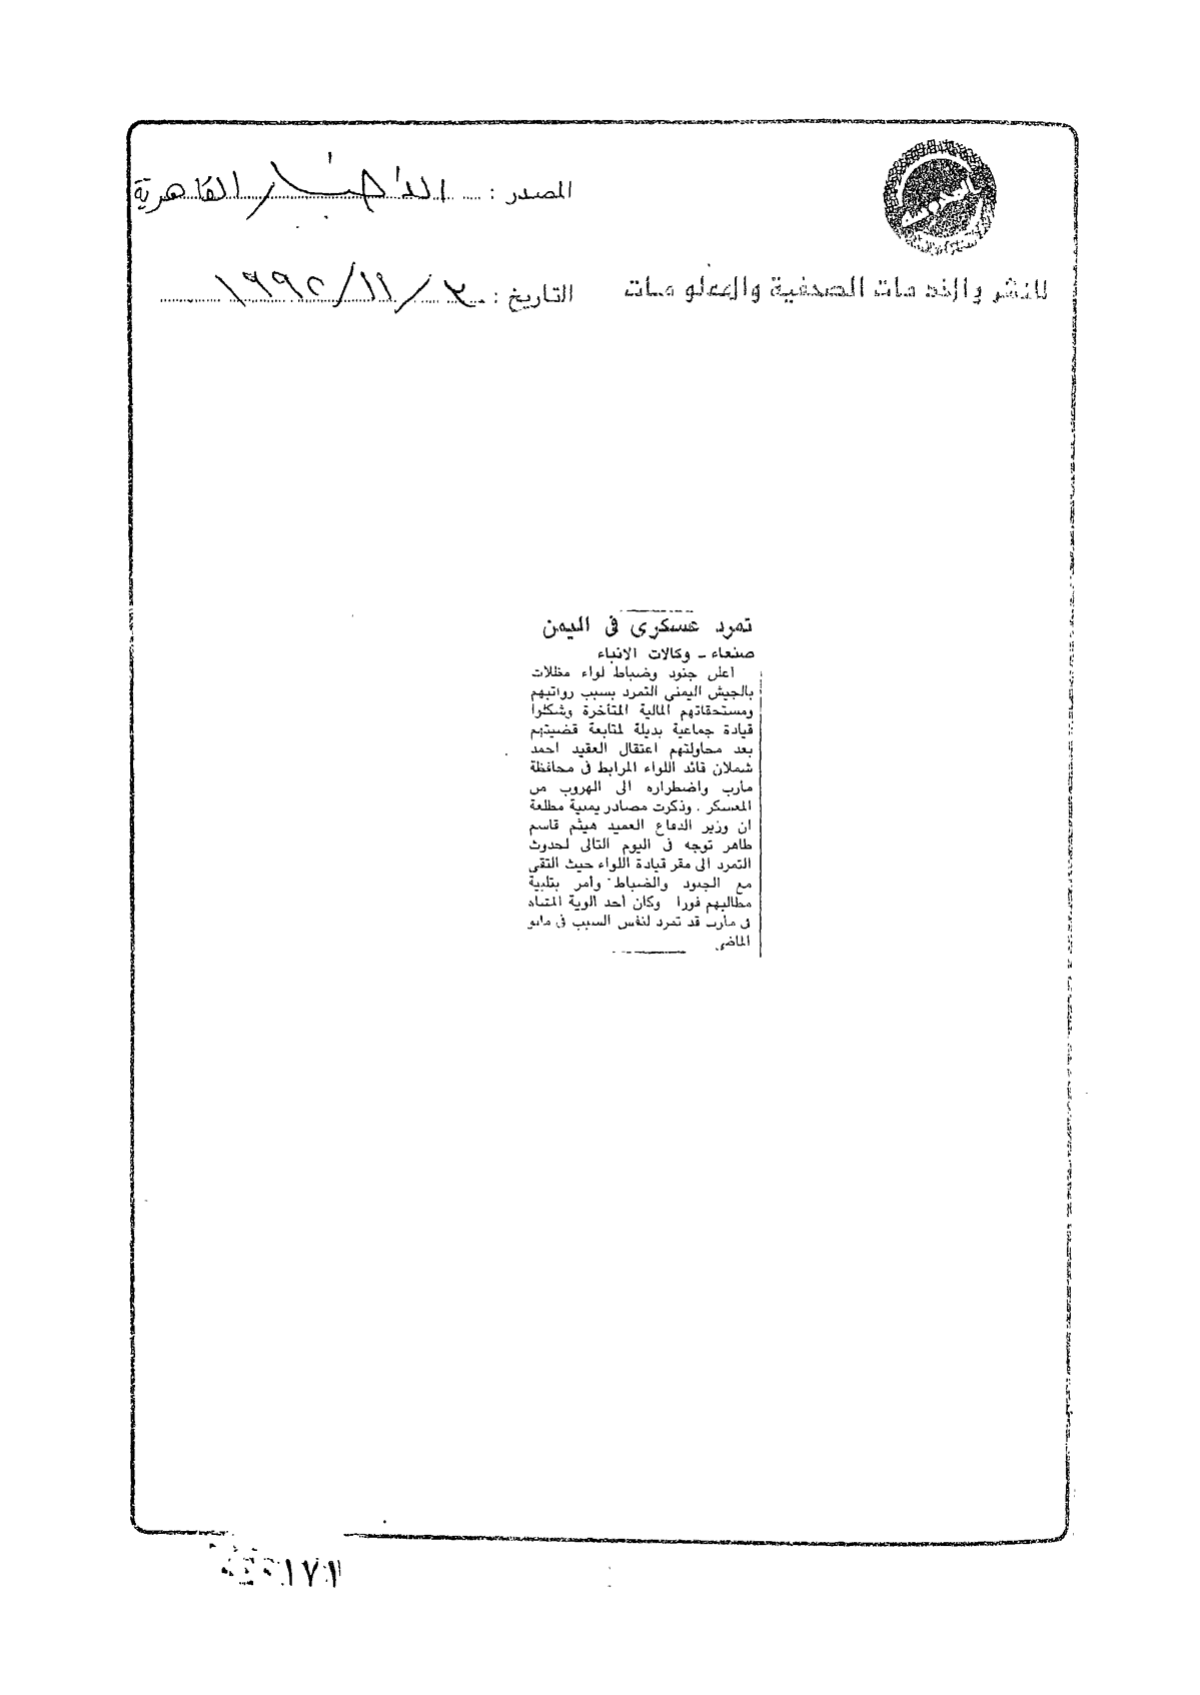 المصدر : الأخبار القاهرية
للنشر والخدمات الصحفية والمعلومات
التاريخ : ٢ / ١١ / ١٩٩٢
تمرد عسكرى فى اليمن
صنعاء ـ وكالات الانباء
اعلن جنود وضباط لواء مظلات
بالجيش اليمنى التمرد بسبب رواتبهم
ومستحقاتهم المالية المتأخرة وشكلوا
قيادة جماعية بديلة لمتابعة قضيتهم
بعد محاولتهم اعتقال العقيد احمد
شملان قائد اللواء المرابط فى محافظة
مأرب واضطراره الى الهروب من
المعسكر . وذكرت مصادر يمنية مطلعة
ان وزير الدفاع العميد هيثم قاسم
طاهر توجه فى اليوم التالى لحدوث
التمرد الى مقر قيادة اللواء حيث التقى
مع الجنود والضباط وأمر بتلبية
مطالبهم فورا وكان أحد الوية المشاه
فى مأرب قد تمرد لنفس السبب فى مايو
الماضى